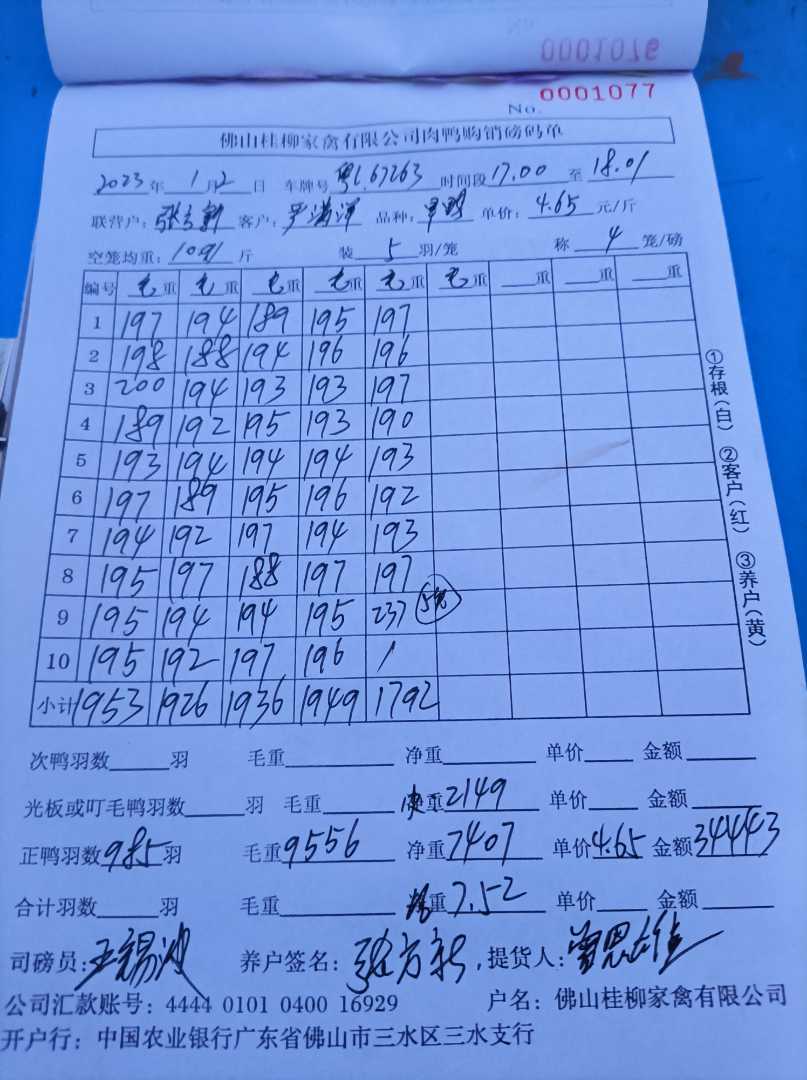 0001076
No. 0001077
佛山桂柳家禽有限公司肉鸭购销磅码单
2023年1月2日 车牌号 粤L67263 时间段17.00至18.01
联营户: 张方新 客户: 罗满洋 品种: 单价: 4.65元/斤
空笼均重: 10.91斤 装5羽/笼 称4笼/磅
编号 毛重 毛重 毛重 毛重 毛重 毛重 重 重 重
1 197 194 189 195 197
2 198 188 194 196 196
3 200 194 193 193 197
4 189 192 195 193 190
5 193 194 194 194 193
6 197 189 195 196 192
7 194 192 197 194 193
8 195 197 188 197 197
9 195 194 194 195 237 5笼
10 195 192 197 196 /
小计 1953 1926 1936 1949 1792
①存根(白) ②客户(红) ③养户(黄)
次鸭羽数 羽 毛重 净重 单价 金额
光板或叮毛鸭羽数 羽 毛重 重2149 单价 金额
正鸭羽数985羽 毛重9556 净重7407 单价4.65 金额34443
合计羽数 羽 毛重 重7.52 单价 金额
司磅员: 王锡沙 养户签名: 张方新 提货人: 曾思雄
公司汇款账号: 4444 0101 0400 16929 户名: 佛山桂柳家禽有限公司
开户行: 中国农业银行广东省佛山市三水区三水支行